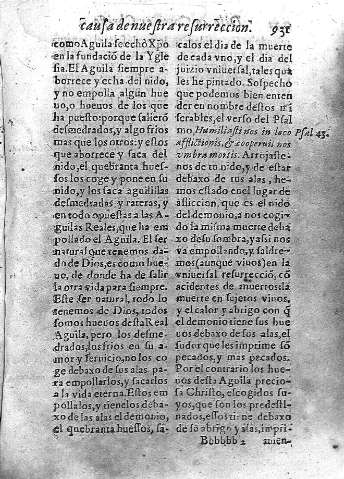 causa de nuestra resurreccion. 931
como Aguila se echò Xpo
en la fundació de la Ygle
sia. El Aguila siempre a-
borrece y echa del nido,
y no empolla algun hue
uo, o hueuos de los que
ha puesto: porque salierõ
desmedrados, y algo frios
mas que los otros: y estos
que aborrece y saca del
nido, el quebranta hues-
sos los coge y pone en su
nido, y los saca aguilillas
desmedradas y rateras, y
en todo opuestas a las A-
guilas Reales, que ha em
pollado el Aguila. El ser
natural que tenemos da-
do de Dios, es como hue
uo, de donde ha de salir
la otra vida para siempre.
Este ser natural, todo lo
tenemos de Dios, todos
somos hueuos desta Real
Aguila, pero los desme-
drados, los frios en su a-
mor y seruicio, no los co
ge debaxo de sus alas pa-
ra empollarlos, y sacarlos
a la vida eterna. Estos em
polla los, y tienelos deba-
xo de las alas el demonio,
el quebranta huessos, sa-
calos el dia de la muerte
de cada vno, y el dia del
juyzio vniuersal, tales quã
les he pintado. Sospecho
que podemos bien enten
der en nombre destos mi
serables, el verso del Psal
mo, Humiliasti nos in loco
afflictionis, & cooperuit nos
vmbra mortis. Arrojaste-
nos de tu nido, y de estar
debaxo de tus alas, he-
mos estado en el lugar de
afliccion, que es el nido
del demonio, a nos cogi-
do la misma muerte deba
xo de su sombra, y assi nos
va empollando, y saldre-
mos (aunque viuos) en la
vniuersal resurreccion, cõ
accidentes de muertos: la
muerte en sujetos viuos,
y el calor y abrigo con q̃
el demonio tiene sus hue
uos debaxo de sus alas, el
sudor que les imprime sõ
pecados, y mas pecados.
Por el contrario los hue-
uos desta Aguila precio-
sa Christo, escogidos su-
yos, que son los predesti-
nados, essos tiene debaxo
de su abrigo y alas, impri-
Psal. 43.
Bbbbbb 2 mien-